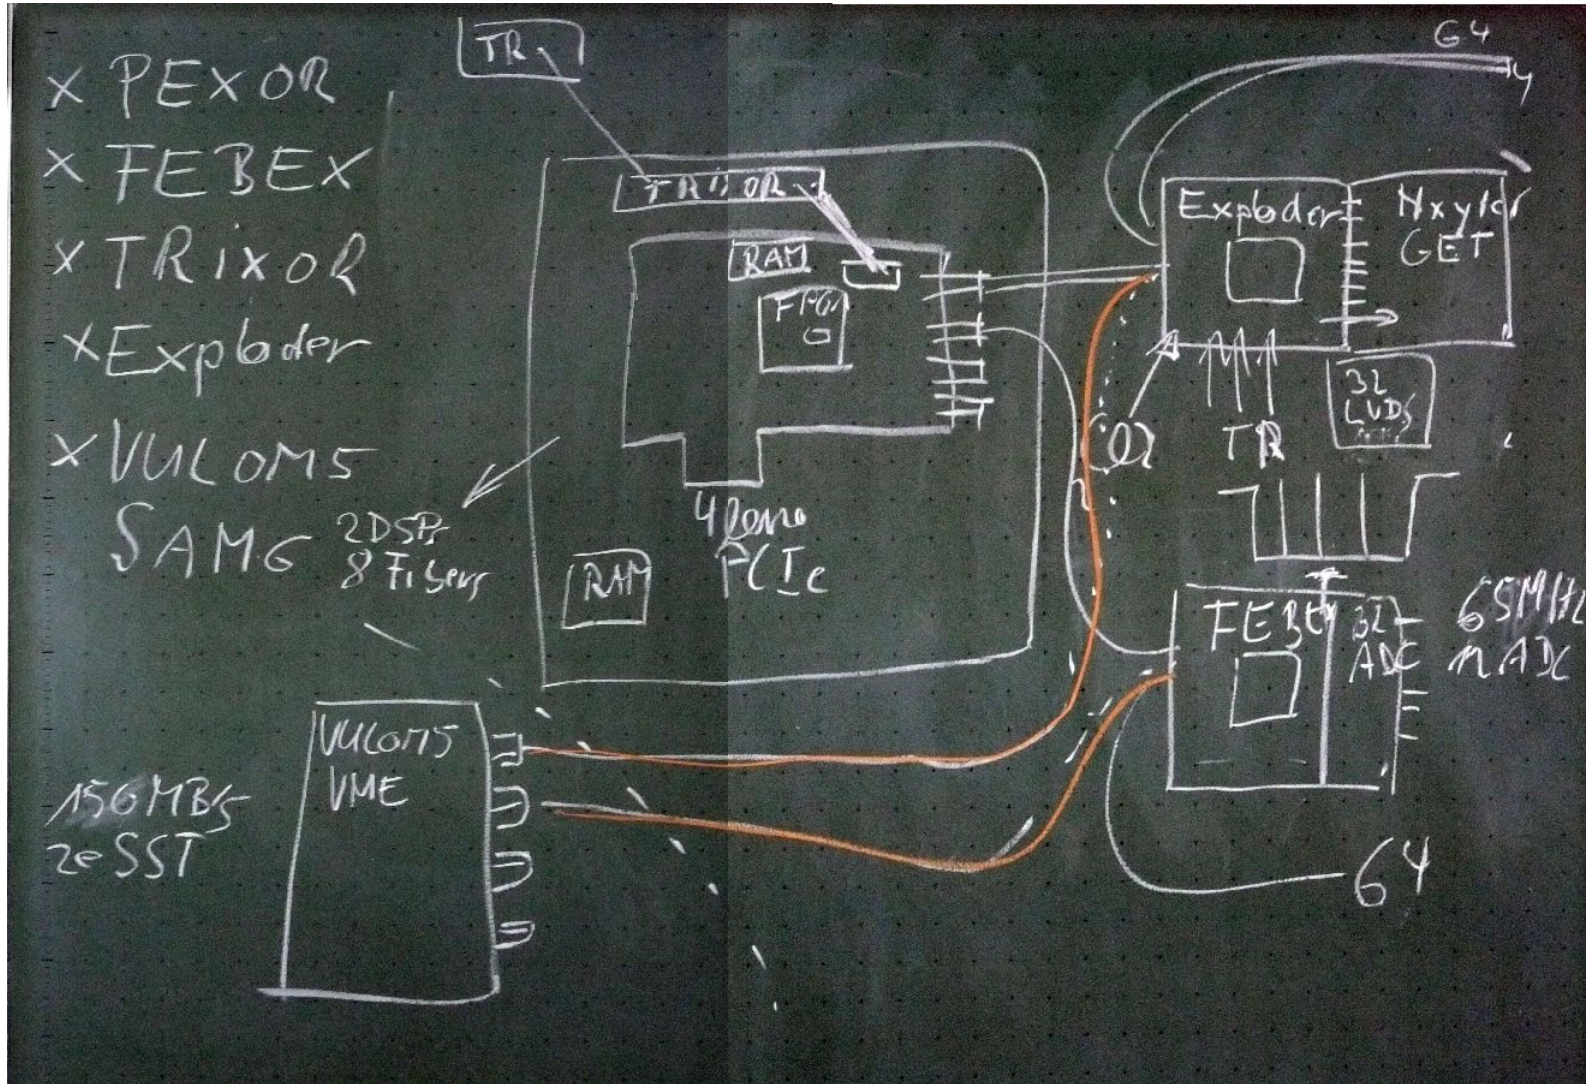 x PEXOR
x FEBEX
x TRixOR
x Exploder
x VULOM5
SAM6
2DSPs
8 Fibers
TR
TRiXOR
RAM
FPGA
4 lane
PCIe
RAM
VULOM5
VME
156MB/s
2eSST
64
Exploder
Nxyter
GET
TR
32
LVDS
FEBEX
32
ADC
65MHz
12 ADC
64